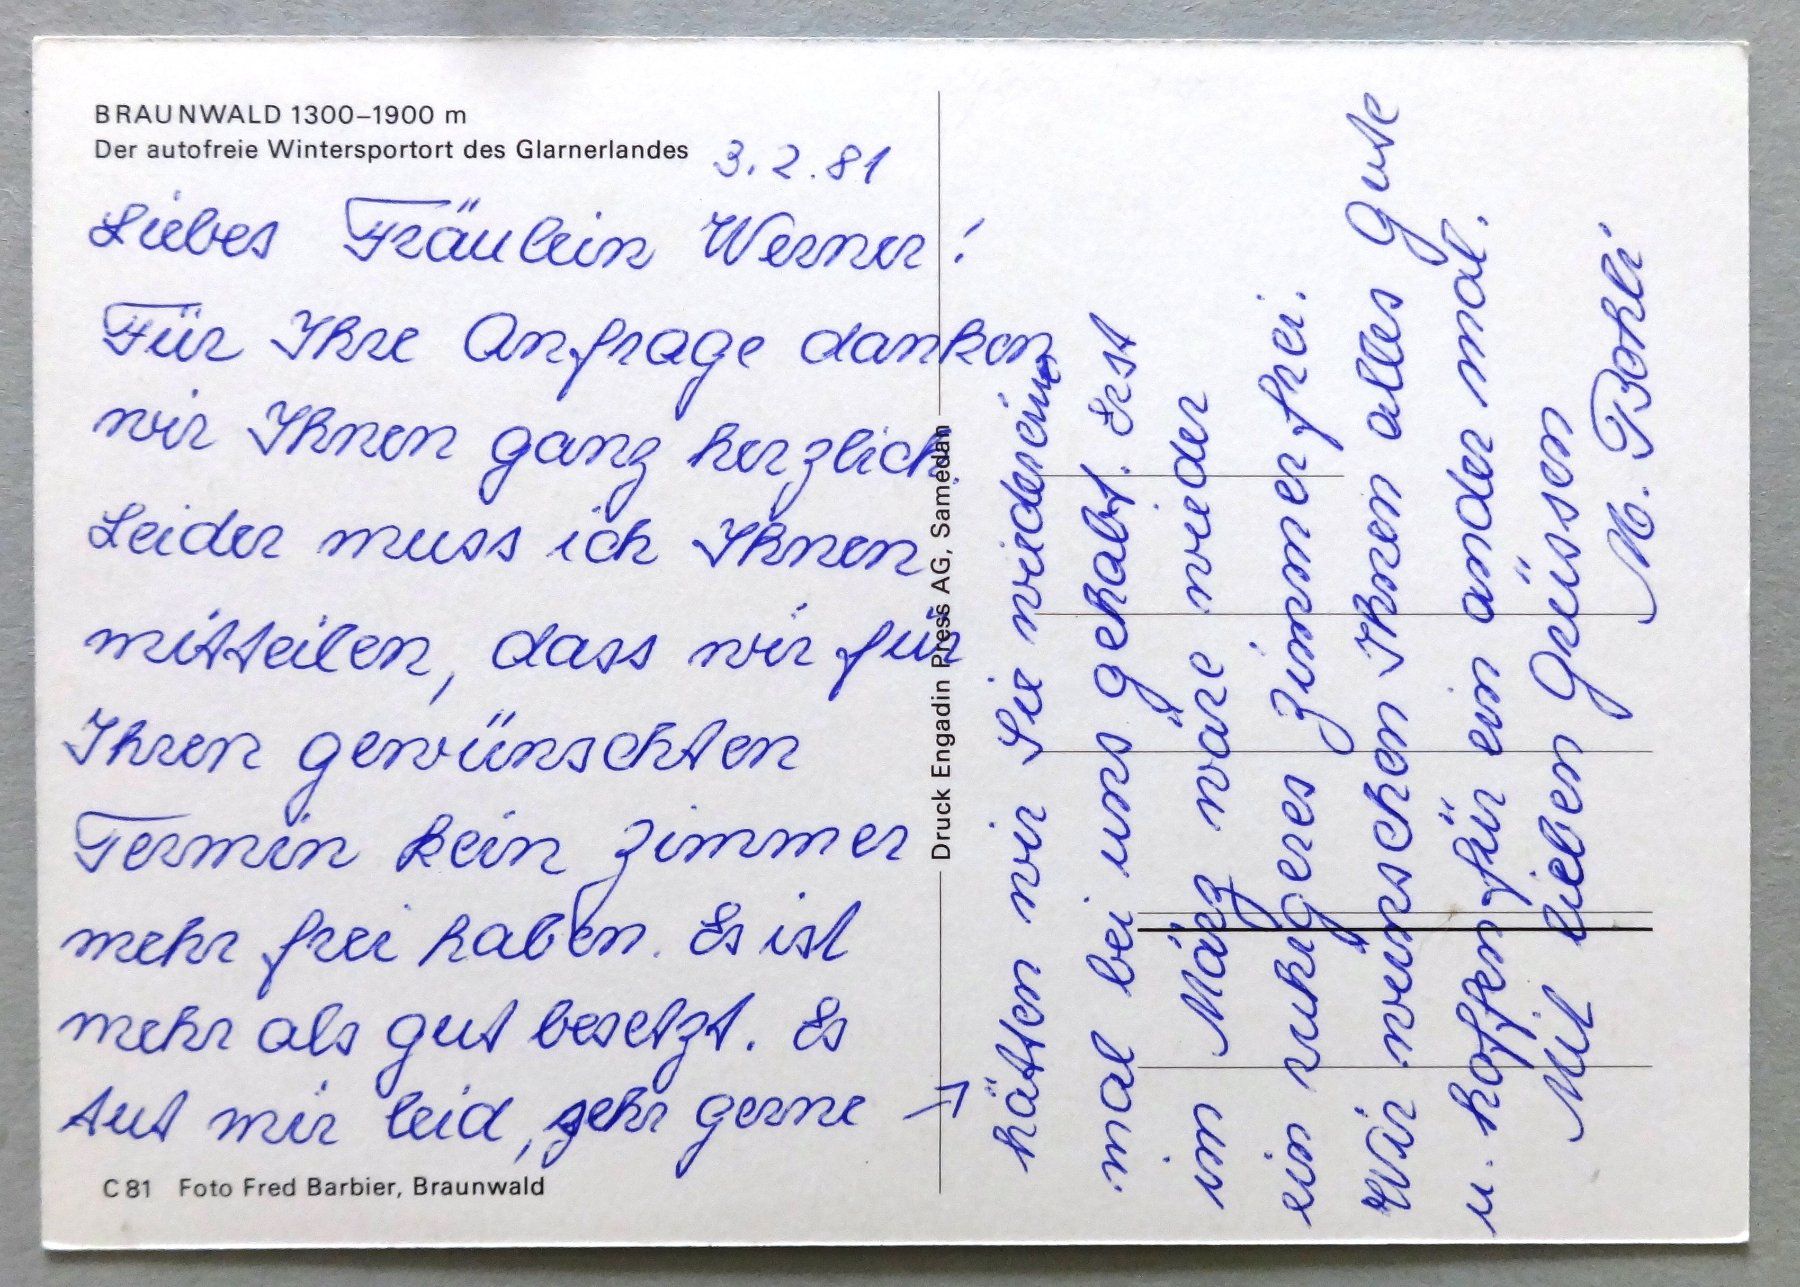 BRAUNWALD 1300–1900 m
Der autofreie Wintersportort des Glarnerlandes
3.2.81
Liebes Fräulein Werner!
Für Ihre Anfrage danken
wir Ihnen ganz herzlich.
Leider muss ich Ihnen
mitteilen, dass wir für
Ihren gewünschten
Termin kein Zimmer
mehr frei haben. Es ist
mehr als gut besetzt. Es
tut mir leid, sehr gerne →
hätten wir Sie wieder ein
mal bei uns gehabt. Erst
im März wäre wieder
ein ruhigeres Zimmer frei.
Wir wünschen Ihnen alles Gute
u. hoffen für ein ander mal.
Mit lieben Grüssen
M. Bohli
Druck Engadin Press AG, Samedan
C 81 Foto Fred Barbier, Braunwald